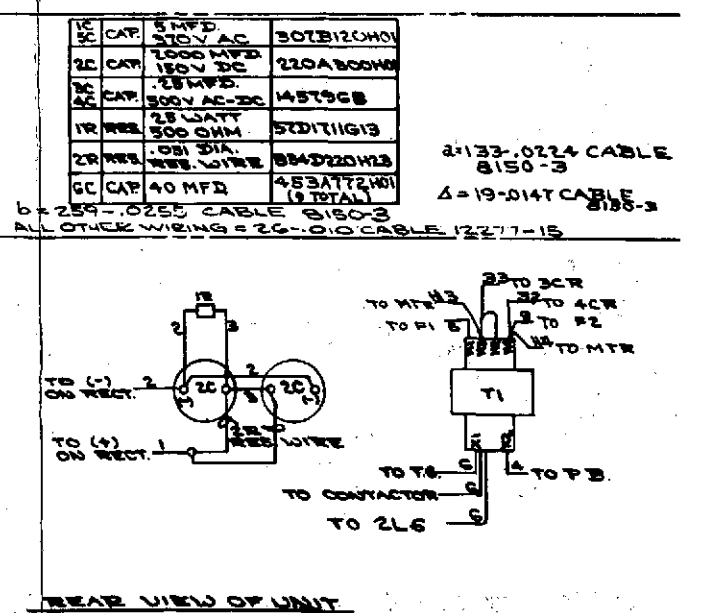 1C 5C CAP. 5 MFD. 370V AC 307B120H01
2C CAP. 2000 MFD. 150V DC 220A300H01
3C 4C CAP. .25 MFD. 500V AC-DC 1457968
1R RES. 25 WATT 500 OHM 57D1711G13
2R RES. .051 DIA. RES. WIRE 884D220H23
6C CAP. 40 MFD. 453A772H01 (9 TOTAL)
a=133-.0224 CABLE
8150-3
Δ=19-.0147 CABLE
8150-3
b=259-.0255 CABLE 8150-3
ALL OTHER WIRING = 26-.010 CABLE 12277-15
1R
2 3
TO (-)
ON RECT. 2
2C
2
3
2C
2R
RES. WIRE
TO (+)
ON RECT. 1
33 TO 3CR
TO MTR H3
32 TO 4CR
TO F1
TO F2
H4 TO MTR
T1
X1 X2
TO T.B. 6
4 TO P.B.
TO CONTACTOR 6
TO 2LS 6
REAR VIEW OF UNIT